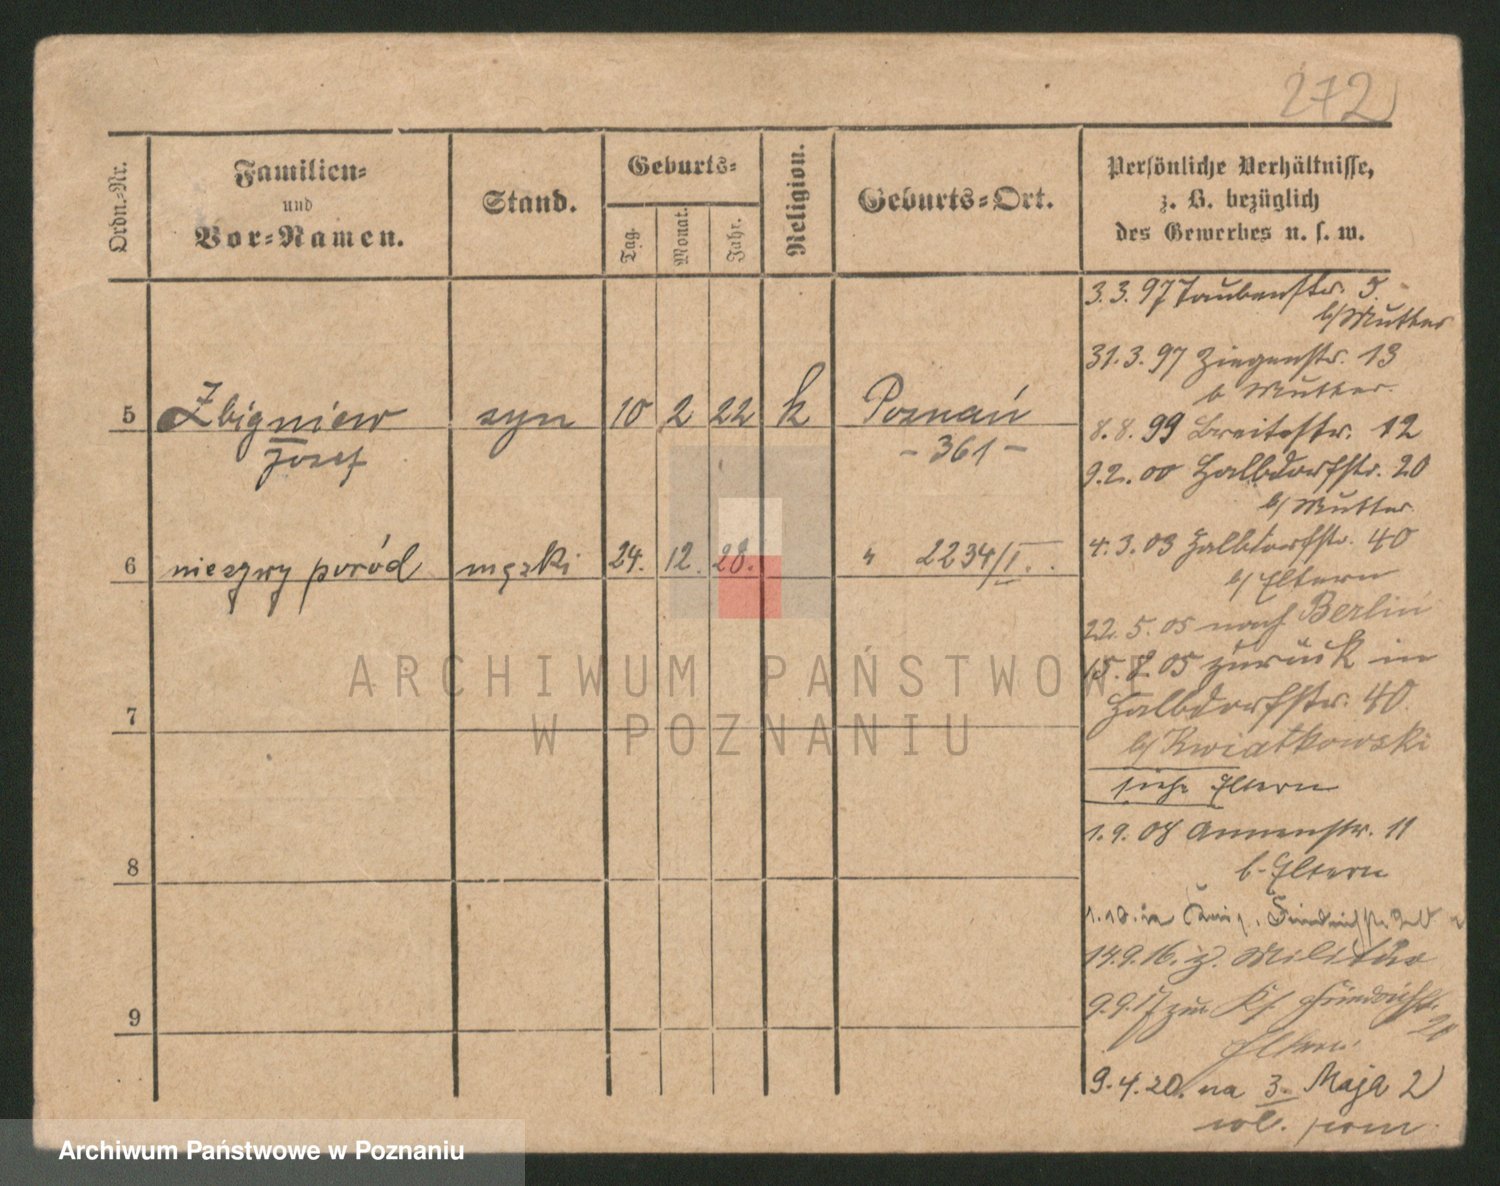 272
Ordn.-Nr.
Familien-
und
Vor-Namen.
Stand.
Geburts-
Tag.
Monat.
Jahr.
Religion.
Geburts-Ort.
Persönliche Verhältnisse,
z. B. bezüglich
des Gewerbes u. s. w.
5 Zbigniew syn 10 2 22 k Poznań
Józef - 361 -
6 nieżywy poród męzki 24. 12. 28. " 2234/I.
7
8
9
3.3.97 Taubenstr. 5
b/Mutter
31.3.97 Ziegenstr. 13
b Mutter.
8.8.99 Breitestr. 12
9.2.00 Halbdorfstr. 20
b/Mutter
4.3.03 Halbdorfstr. 40
b/Eltern
22.5.05 nach Berlin
15.8.05 zurück in
Halbdorfstr. 40.
b/Kwiatkowski
siehe Eltern
1.9.08 Annenstr. 11
b. Eltern
14.9.16. z. Militär
9.9.17 zur
Eltern
9.4.20. na 3. Maja 2
ARCHIWUM PAŃSTWOWE
W POZNANIU
Archiwum Państwowe w Poznaniu